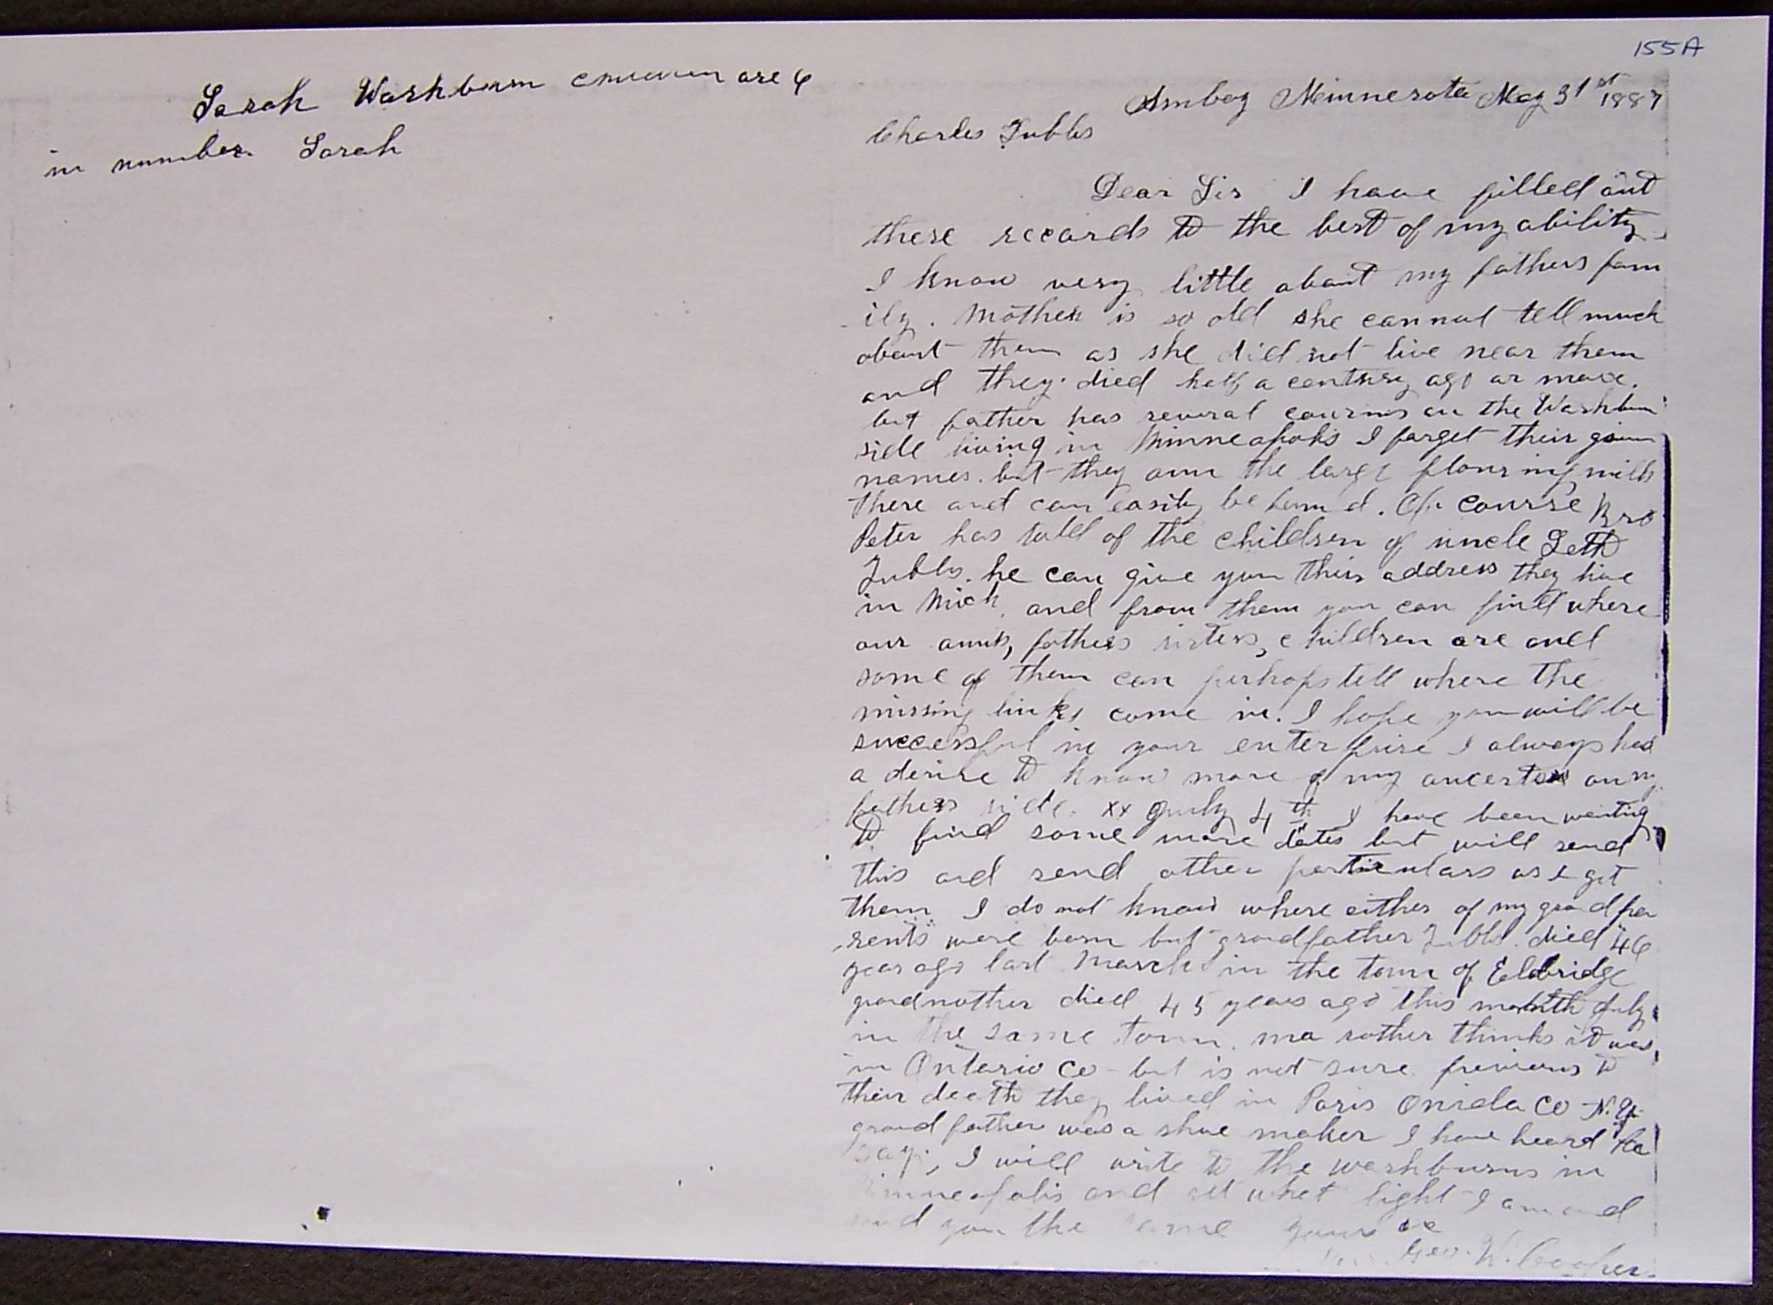 155A
Sarah Washburn children are 6
in number. Sarah
Amboy Minnesota May 31st 1887
Charles Tubbs
Dear Sir I have filled out
these records to the best of my ability
I know very little about my fathers fam
ily. Mother is so old she cannot tell much
about them as she did not live near them
and they died half a century ago or more.
but father has several cousins on the Washburn
side living in Minneapolis I forget their given
names. but they own the large flouring mills
there and can easily be found. Of course Bro
Peter has told of the children of uncle
Tubbs. he can give you their address they live
in Mich. and from them you can find where
our aunts, fathers sisters, children are and
some of them can perhaps tell where the
missing links come in. I hope you will be
successful in your enterprise I always had
a desire to know more of my ancestors on my
fathers side. xx July 4th I have been waiting
to find some more dates but will send
this and send other particulars as I get
them I do not know where either of my grandpa
rents were born but grandfather Tubbs died 46
years ago last March in the town of Elbridge
grandmother died 45 years ago this month July
in the same town. ma rather thinks it was
in Ontario Co - but is not sure previous to
their death they lived in Paris Onida Co N.Y.
grandfather was a shoe maker I have heard Pa
say, I will write to the washburns in
Minneapolis and get what light I can and
send you the same yours &c
Geo. W. Cooper.